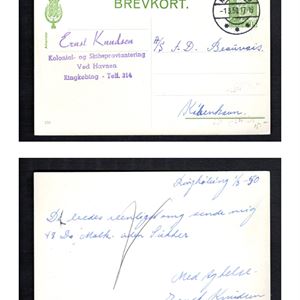 BREVKORT.
Ernst Knudsen
Kolonial- og Skibsproviantering
Ved Havnen
Ringkøbing - Telf. 314
A/S J. D. Beauvais.
København.
Ringkøbing 1/3-50
De bedes venligst sende mig
48 Ds
Med Agtelse.
Ernst Knudsen